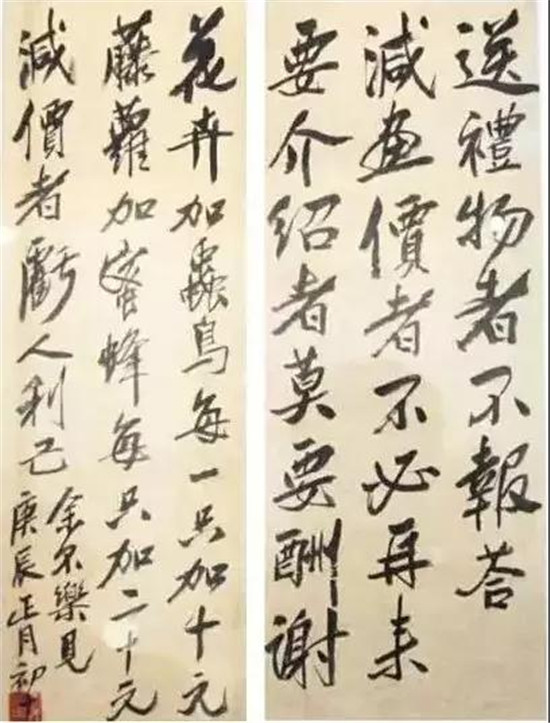 送禮物者不報荅
減画價者不必再来
要介绍者莫要酬谢
花卉加蟲鳥每一只加十元
藤蘿加蜜蜂每只加二十元
減價者虧人利己
余不樂見
庚辰正月初十